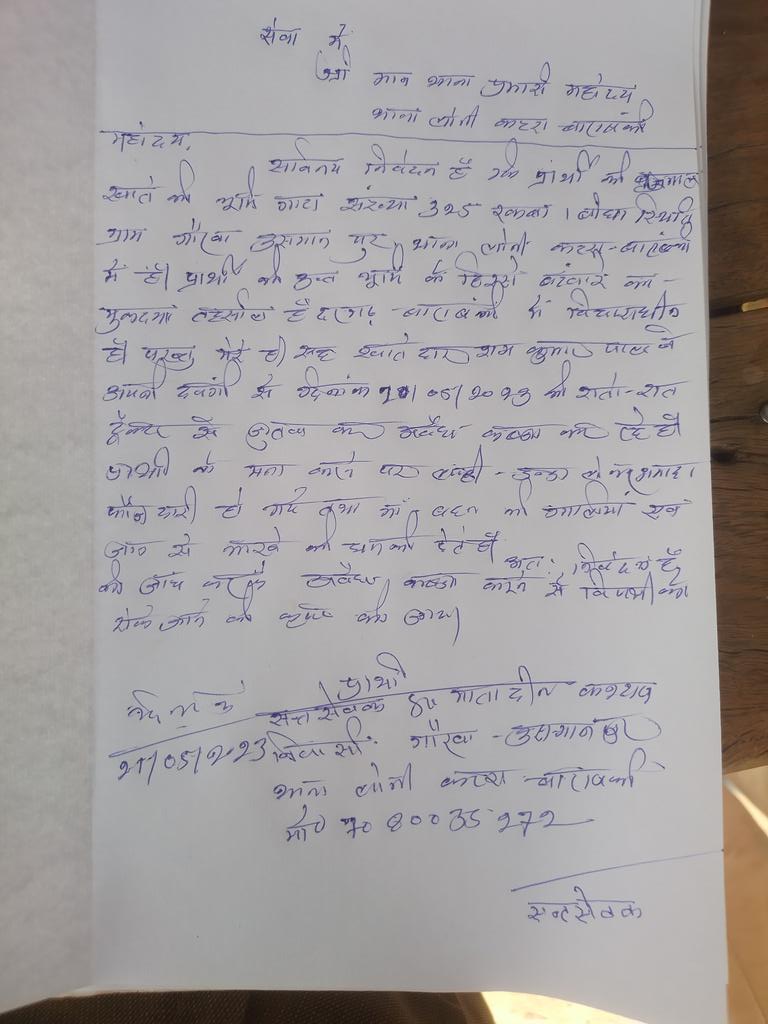 सेवा में
श्री मान थाना प्रभारी महोदय
थाना लोनी कटरा - बाराबंकी
महोदय,
सविनय निवेदन है कि प्रार्थी की
खाते की भूमि गाटा संख्या 325 रकबा 1 बीघा स्थित
ग्राम गौरवा उसमान पुर, थाना लोनी कटरा - बाराबंकी
में है। प्रार्थी की उक्त भूमि के हिस्से बंटवारे का
मुकदमा तहसील हैदरगढ़ - बाराबंकी में विचाराधीन
है। परन्तु मेरे ही सह खातेदार राम कुमार ने
अपनी दबंगी से दिनांक /05/2023 को रातो-रात
ट्रैक्टर से जुतवा कर अवैध कब्जा कर रहे है
प्रार्थी के मना करने पर लाठी - डन्डा
फौजदारी हो गये तथा माँ बहन की गालियां एवं
जान से मारने की धमकी देते है। अतः निवेदन है
की जांच करके अवैध कब्जा करने से विपक्षी को
रोके जाने की कृपा की जाय।
प्रार्थी
दिनांक सन्त सेवक s/o माता दीन कश्यप
21/05/2023 निवासी: गौरवा - उसमानपुर
थाना लोनी कटरा - बाराबंकी
मो० 7080035272
सन्तसेवक